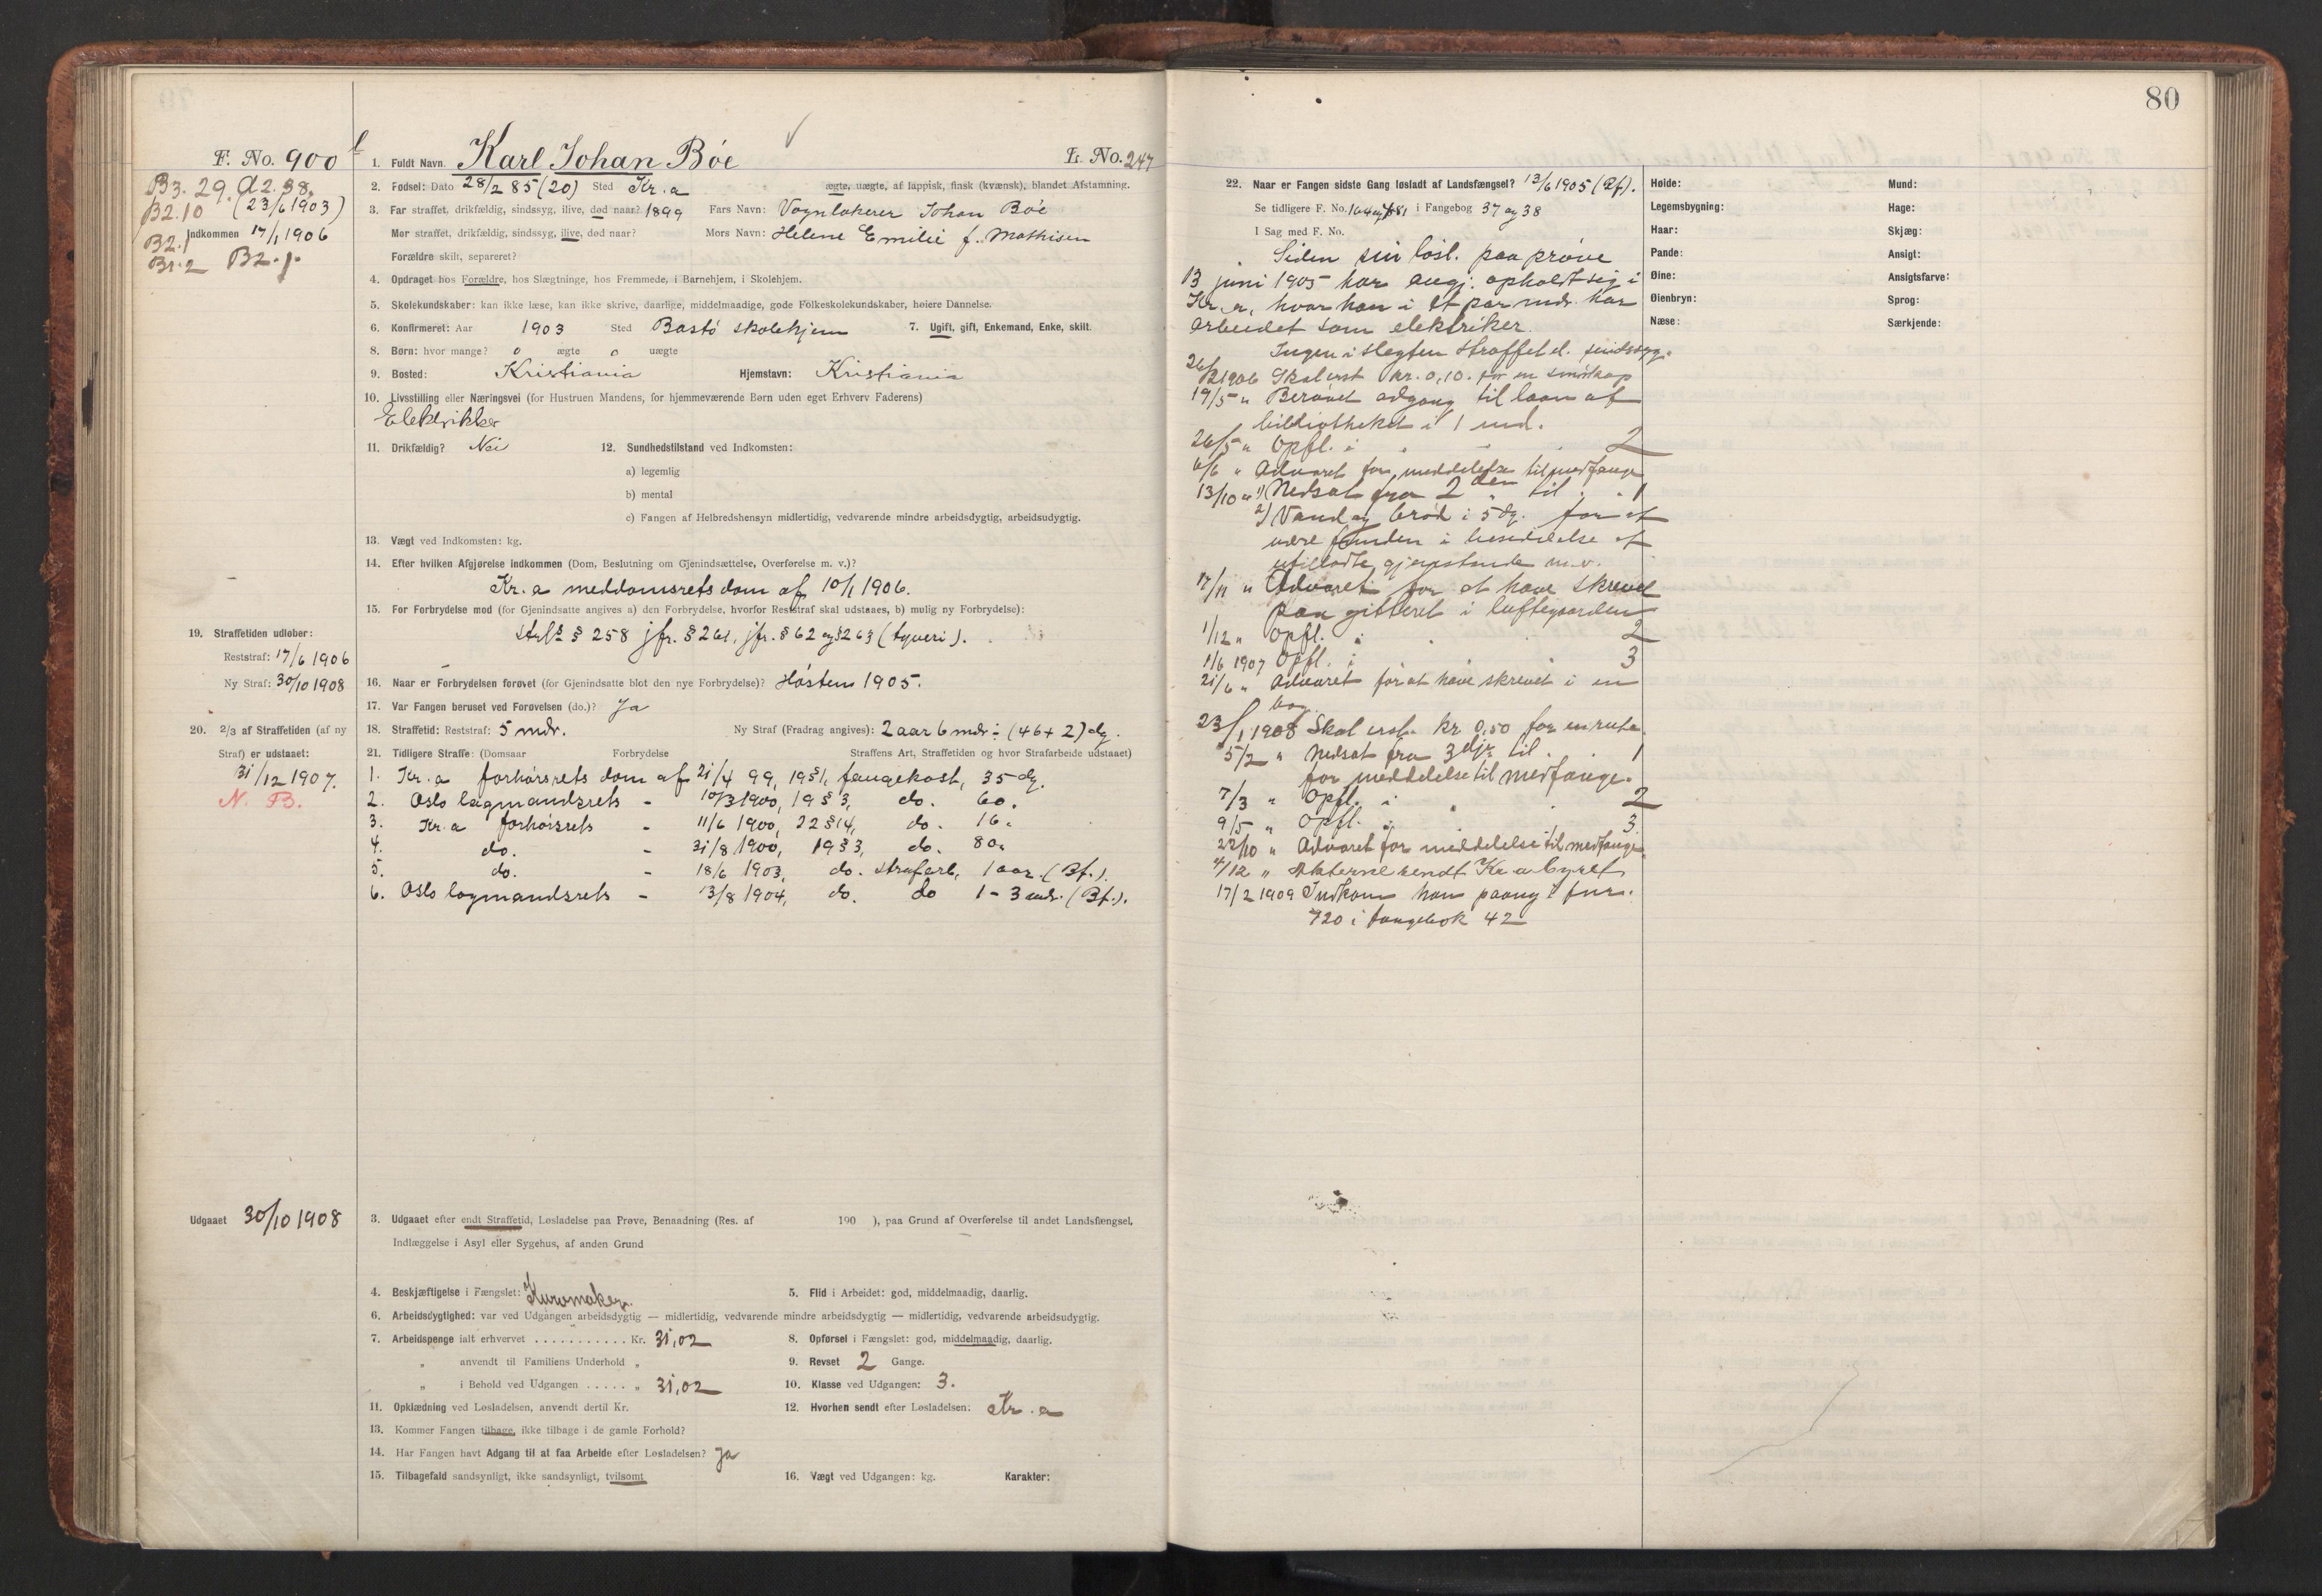 F. No. 900
B3. 29. A2. 38.
B2. 10 (23/6 1903)
Indkommen 17/1 1906
B2. 1
B1. 2 B2. 1.
1. Fuldt Navn. Karl Johan Bøe L. No. 247
2. Fødsel: Dato 28/2 85 (20) Sted Kr.a ægte, uægte, af lappisk, finsk (kvænsk), blandet Afstamning.
3. Far straffet, drikfældig, sindssyg, ilive, død naar? 1899 Fars Navn: Vognlakerer Johan Bøe
Mor straffet, drikfældig, sindssyg, ilive, død naar? Mors Navn: Helene Emilie f. Mathisen
Forældre skilt, separeret?
4. Opdraget hos Forældre, hos Slægtninge, hos Fremmede, i Barnehjem, i Skolehjem.
5. Skolekundskaber: kan ikke læse, kan ikke skrive, daarlige, middelmaadige, gode Folkeskolekundskaber, høiere Dannelse.
6. Konfirmeret: Aar 1903 Sted Bastø skolehjem 7. Ugift, gift, Enkemand, Enke, skilt.
8. Børn: hvor mange? 0 ægte 0 uægte
9. Bosted: Kristiania Hjemstavn: Kristiania
10. Livsstilling eller Næringsvei (for Hustruen Mandens, for hjemmeværende Børn uden eget Erhverv Faderens)
Elektrikker
11. Drikfældig? Nei 12. Sundhedstilstand ved Indkomsten:
a) legemlig
b) mental
c) Fangen af Helbredshensyn midlertidig, vedvarende mindre arbeidsdygtig, arbeidsudygtig.
13. Vægt ved Indkomsten: kg.
14. Efter hvilken Afgjørelse indkommen (Dom, Beslutning om Gjenindsættelse, Overførelse m. v.)?
Kr.a meddomsrets dom af 10/1 1906.
15. For Forbrydelse mod (for Gjenindsatte angives a) den Forbrydelse, hvorfor Reststraf skal udstaaes, b) mulig ny Forbrydelse):
§ 258 jfr. § 261, jfr. § 62 og § 263 (tyveri).
19. Straffetiden udløber:
Reststraf: 17/6 1906
Ny Straf: 30/10 1908
16. Naar er Forbrydelsen forøvet (for Gjenindsatte blot den nye Forbrydelse)? Høsten 1905.
17. Var Fangen beruset ved Forøvelsen (do.)? Ja
20. 2/3 af Straffetiden (af ny Straf) er udstaaet:
31/12 1907.
N. B.
18. Straffetid: Reststraf: 5 mdr. Ny Straf (Fradrag angives): 2 aar 6 mdr ÷ (46 + 2) dg.
21. Tidligere Straffe: (Domsaar Forbrydelse Straffens Art, Straffetiden og hvor Strafarbeide udstaaet)
1. Kr.a forhørsrets dom af 21/4 99, 19 § 1, fangekost, 35 dg.
2. Oslo lagmandsrets - 10/3 1900, 19 § 3, do. 60 "
3. Kr.a forhørsrets - 11/6 1900, 22 § 14, do. 16 "
4. do. - 31/8 1900, 19 § 3, do. 80 "
5. do. - 18/6 1903, do. strafarb. 1 aar (Bf.).
6. Oslo lagmandsrets - 13/8 1904, do. do 1 - 3 mdr. (Bf.).
Udgaaet 30/10 1908
3. Udgaaet efter endt Straffetid, Løsladelse paa Prøve, Benaadning (Res. af 190 ), paa Grund af Overførelse til andet Landsfængsel,
Indlæggelse i Asyl eller Sygehus, af anden Grund
4. Beskjæftigelse i Fængslet: Kurvmaker. 5. Flid i Arbeidet: god, middelmaadig, daarlig.
6. Arbeidsdygtighed: var ved Udgangen arbeidsdygtig — midlertidig, vedvarende mindre arbeidsdygtig — midlertidig, vedvarende arbeidsudygtig.
7. Arbeidspenge ialt erhvervet . . . . . . . . . . . Kr. 31,02 8. Opførsel i Fængslet: god, middelmaadig, daarlig.
" anvendt til Familiens Underhold " 9. Revset 2 Gange.
" i Behold ved Udgangen . . . . . " 31,02 10. Klasse ved Udgangen: 3.
11. Opklædning ved Løsladelsen, anvendt dertil Kr. 12. Hvorhen sendt efter Løsladelsen: Kr.a
13. Kommer Fangen tilbage, ikke tilbage i de gamle Forhold?
14. Har Fangen havt Adgang til at faa Arbeide efter Løsladelsen? Ja
15. Tilbagefald sandsynligt, ikke sandsynligt, tvilsomt 16. Vægt ved Udgangen: kg. Karakter:
80
22. Naar er Fangen sidste Gang løsladt af Landsfængsel? 13/6 1905 (Bf).
Se tidligere F. No. 164 og 581 i Fangebog 37 og 38
I Sag med F. No.
Siden sin løsl. paa prøve
13 juni 1905 har angj. opholdt sig i
Kr.a, hvor han i et par mdr. har
arbeidet som elektriker.
Ingen i slegten straffet el. sindssyg.
26/2 1906 Skal erst. kr. 0,10. for en
19/5 " Berøvet adgang til laan af
bibliotheket i 1 md.
26/5 " Opfl. i " " 2
6/6 " Advaret for meddelelse til medfange
13/10 " 1) Nedsat fra 2den til " 1
2) Vand og brød i 5 dg. for at
være funden i besiddelse af
utilladte gjenstande m.v.
17/11 " Advaret for at have skrevet
paa gitteret i luftegaarden
1/12 " Opfl. i " " 2
1/6 1907 Opfl. i " " 3
21/6 " Advaret for at have skrevet i en
bog.
23/1 1908 Skal erst. kr 0,50 for en rute.
5/2 " Nedsat fra 3dje til " 1
for meddelelse til medfange.
7/3 " Opfl. i " 2
9/5 " Opfl. i " 3
22/10 " Advaret for meddelelse til medfange.
4/12 " Akterne sendt Kr.a byret
17/2 1909 Indkom han paany i fnr.
720 i fangebok 42
Høide:
Legemsbygning:
Haar:
Pande:
Øine:
Øienbryn:
Næse:
Mund:
Hage:
Skjæg:
Ansigt:
Ansigtsfarve:
Sprog:
Særkjende: